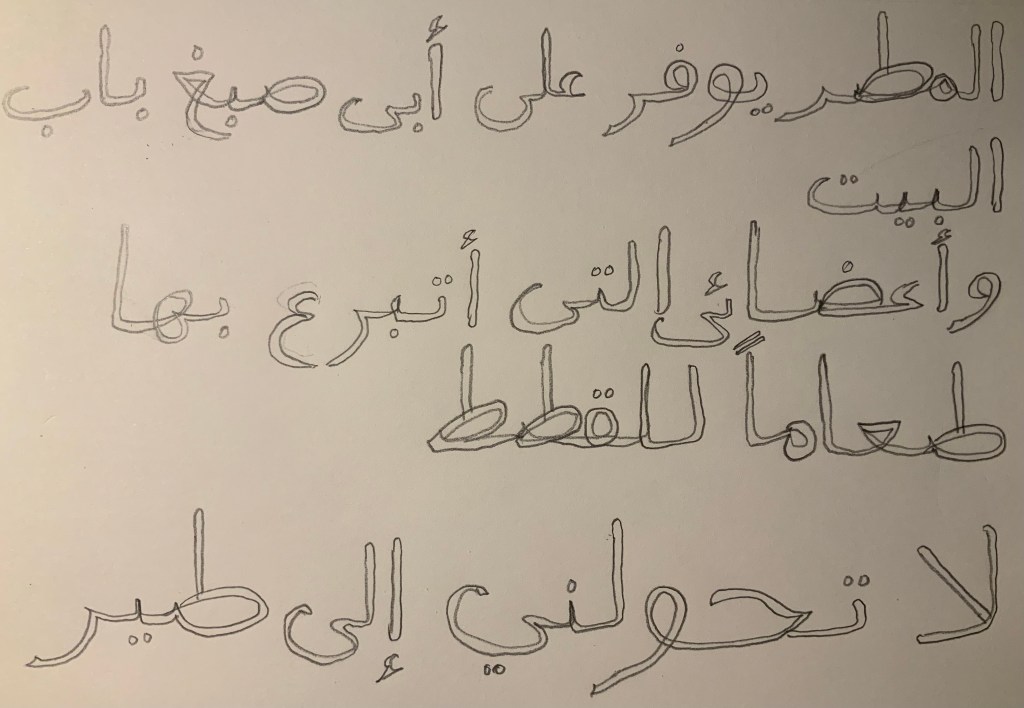 المطر يوفر على أبى صبغ باب
البيت
وأعضائى التى أتبرع بها
طعاماً للقطط
لا تحولني إلى طير